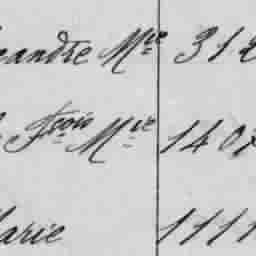 andre Mie 312
Fçois Mie 1407
arie 1111